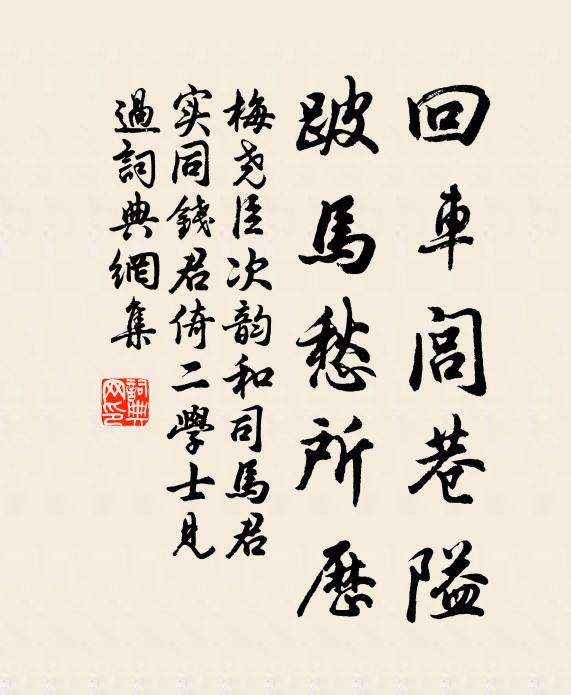 回車閭巷隘
跛馬愁所歷
梅尧臣次韵和司馬君
实同錢君倚二學士見
過詞典網集
詞典
网印